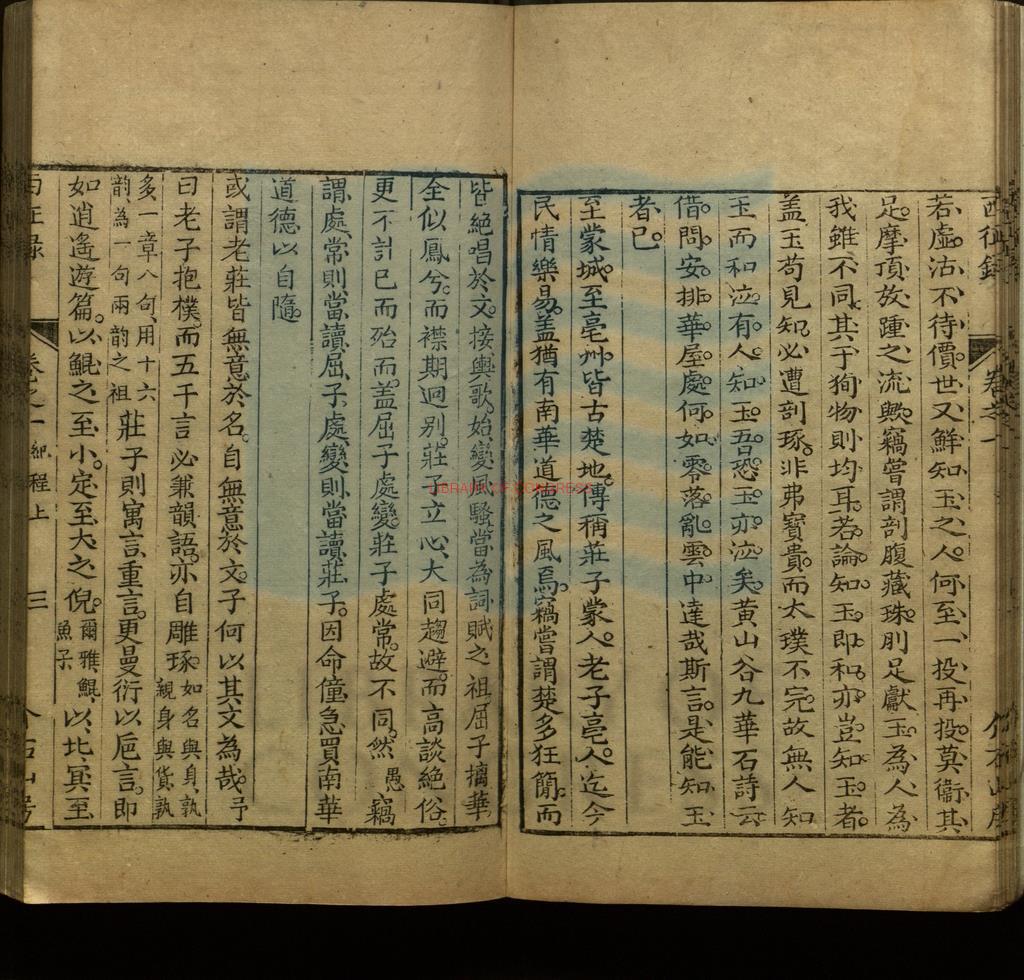 西征錄
卷之一
介石山房
若虛沽不待價世又鮮知玉之人何至一投再投莫衞其
足摩頂放踵之流歟竊嘗謂剖腹藏珠刖足獻玉為人為
我錐不同其于狥物則均耳若論知玉即和亦豈知玉者
盖玉苟見知必遭剖琢非弗寳貴而太璞不完故無人知
玉而和泣有人知玉吾恐玉亦泣矣黃山谷九華石詩云
借問安排華屋處何如零落亂雲中達哉斯言是能知玉
者已
至蒙城至亳州皆古楚地傳稱莊子蒙人老子亳人迄今
民情樂易盖猶有南華道德之風焉竊嘗謂楚多狂簡而
皆絕唱於文接輿歌始變風騷當為詞賦之祖屈子摛華
全似鳳兮而襟期迥別莊子立心大同趨避而高談絕俗
更不計已而殆而盖屈子處變莊子處常故不同然愚竊
謂處常則當讀屈子處變則當讀莊子因命僮急買南華
道德以自隨
或謂老莊皆無意於名自無意於文子何以其文為哉予
曰老子抱樸而五千言必兼韻語亦自雕琢如名與身孰親身與貨孰
多一章八句用十六韵為一句兩韵之祖莊子則寓言重言更曼衍以巵言即
如逍遙遊篇以鯤之至小定至大之倪爾雅鯤魚子以北冥至
西征錄
卷之一 紀程上
三
介石山房
LIBRARY OF CONGRESS